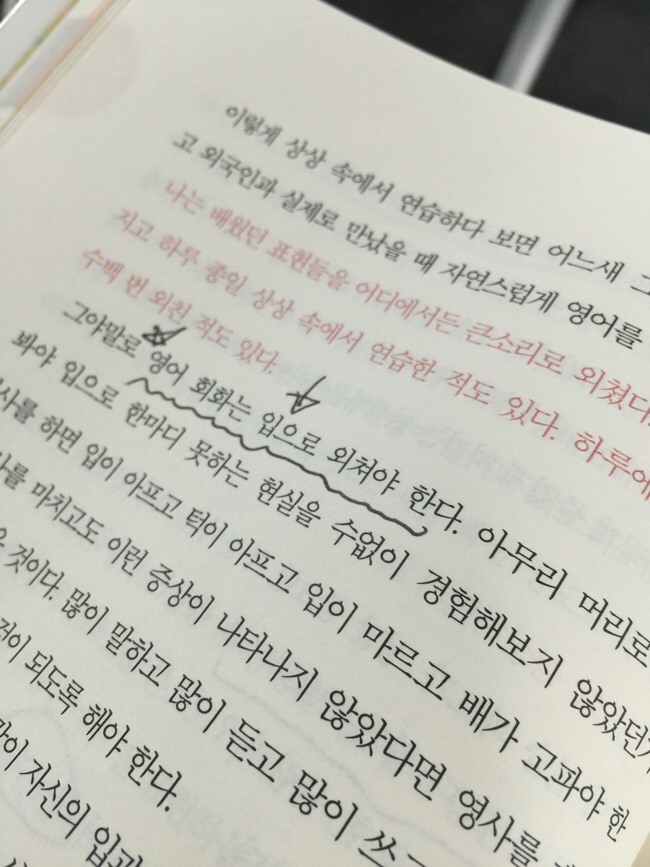 이렇게 상상 속에서 연습하다 보면 어느새 그
고 외국인과 실제로 만났을 때 자연스럽게 영어를
나는 배웠던 표현들을 어디에서든 큰소리로 외쳤다.
지고 하루 종일 상상 속에서 연습한 적도 있다. 하루에
수백 번 외친 적도 있다.
그야말로 영어 회화는 입으로 외쳐야 한다. 아무리 머리로
봐야 입으로 한마디 못하는 현실을 수없이 경험해보지 않았던가
사를 하면 입이 아프고 턱이 아프고 입이 마르고 배가 고파야 한
사를 마치고도 이런 증상이 나타나지 않았다면 영사를
것이다. 많이 말하고 많이 듣고 많이 쓰고
것이 되도록 해야 한다.
많이 자신의 입과